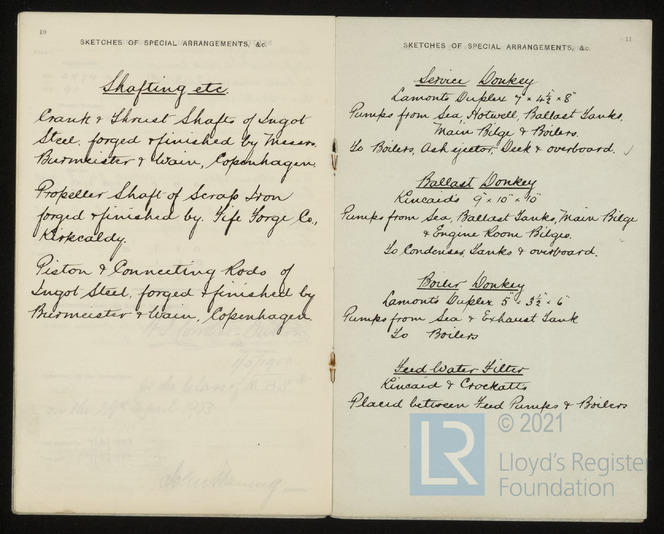 10
SKETCHES OF SPECIAL ARRANGEMENTS, &c.
Shafting etc.
Crank & Thrust Shafts of Ingot
Steel, forged & finished by Messrs.
Burmeister & Wain, Copenhagen.
Propeller Shaft of Scrap Iron
forged & finished by Fife Forge Co,
Kirkcaldy.
Piston & Connecting Rods of
Ingot Steel, forged & finished by
Burmeister & Wain, Copenhagen
11
SKETCHES OF SPECIAL ARRANGEMENTS, &c.
Service Donkey
Lamonts Duplex 7" × 4½" × 8"
Pumps from Sea, Hotwell, Ballast Tanks,
Main Bilge & Boilers.
To Boilers, Ash ejector, Deck & overboard.
Ballast Donkey
Kincaids 9" × 10" × 10"
Pumps from Sea, Ballast Tanks, Main Bilge
& Engine Room Bilges.
To Condenser, Tanks & overboard.
Boiler Donkey
Lamonts Duplex 5" × 3½" × 6"
Pumps from Sea & Exhaust Tank
To Boilers
Feed Water Filter
Kincaid & Crocketts
Placed between Feed Pumps & Boilers
© 2021
LR
Lloyd's Register
Foundation